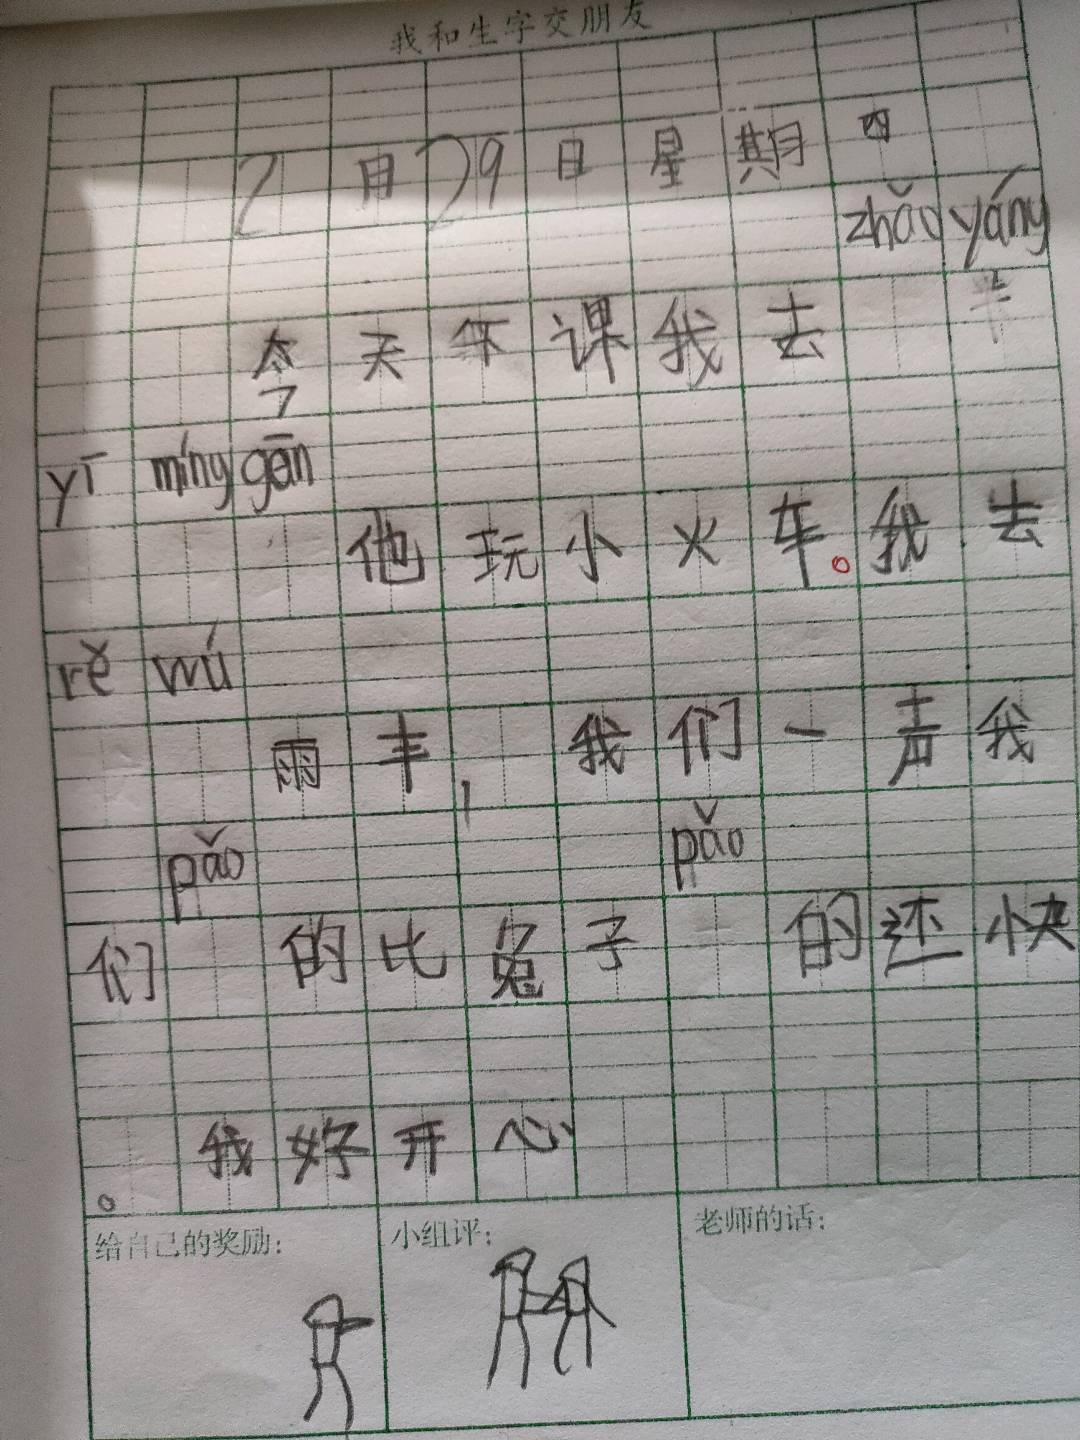 我和生字交朋友
2月29日星期四
zhǎo yáng
今天下课我去
yī míng gān
他玩小火车。我去
rě wú
雨丰,我们一声我
pǎo pǎo
们的比兔子的还快
。我好开心
给自己的奖励: 小组评: 老师的话: